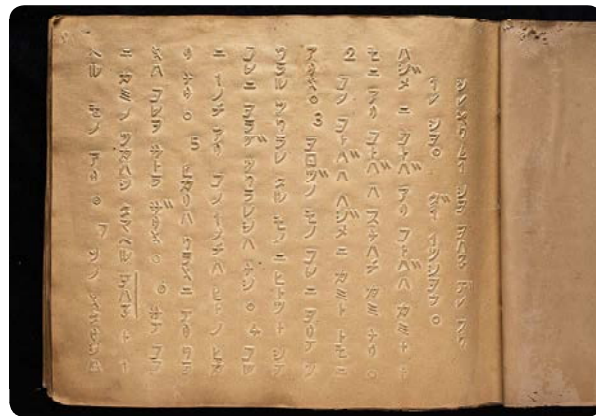 ヨハネ デン フク
イン シヨ。 ダイ イツシヨウ。
ハジメ ニ コトバ アリ コトバハ カミト ト
モニ アリ コトバ ハ スナハチ カミ ナリ。
2 コノ コトバハ ハジメニ カミト トモニ
アリキ。 3 ヨロヅノ モノ コレニ ヨリテ ツ
クラル ツクラレ タル モノ ニ ヒトツト シテ
コレニ ヨラデ ツクラレシハ ナシ。 4 コレ
ニ イノチ アリ コノイノチハ ヒトノ ヒカ
リ ナリ。 5 ヒカリハ クラキニ アリ クラ
キハ コレヲ サトラ ザリキ。 6 サテ ココ
ニ カミノ ツカハシ タマヘル ヨハネ ト イ
ヘル モノ アリ。 7 ソノ